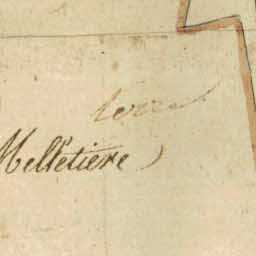 terre
Melletière)